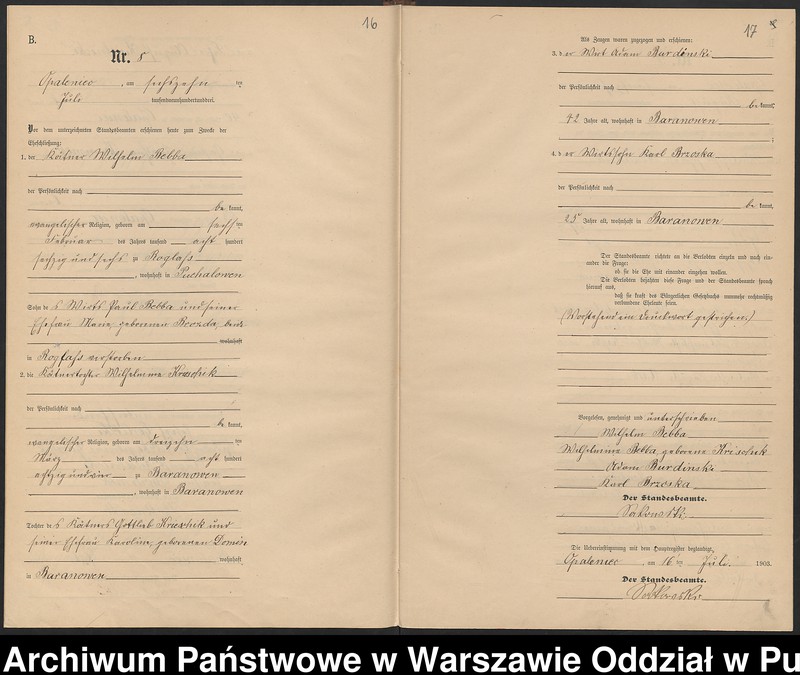 16
B.
Nr. 8
Opaleniec, am sechszehn ten
Juli tausendneunhundertunddrei.
Vor dem unterzeichneten Standesbeamten erschienen heute zum Zweck der
Eheschließung:
1. der Kätner Wilhelm Bebba
der Persönlichkeit nach
be kannt,
evangelischer Religion, geboren am sechs ten
Februar des Jahres tausend acht hundert
sechzig und sechs zu Roglass
, wohnhaft in Puchalowen
Sohn des Wirts Paul Bebba und seiner
Ehefrau Marie, geborenen Brozda, beide
wohnhaft
in Roglass verstorben
2. die Kätnertochter Wilhelmine Krischik
der Persönlichkeit nach
be kannt,
evangelischer Religion, geboren am dreizehn ten
März des Jahres tausend acht hundert
achtzig und vier zu Baranowen
, wohnhaft in Baranowen
Tochter des Kätners Gottlieb Krischik und
seiner Ehefrau Karoline, geborenen Domin
wohnhaft
in Baranowen
17
Als Zeugen waren zugezogen und erschienen:
3. der Wirt Adam Burdinski
der Persönlichkeit nach
be kannt,
42 Jahre alt, wohnhaft in Baranowen
;
4. der Wirtssohn Karl Brzoska
der Persönlichkeit nach
be kannt,
25 Jahre alt, wohnhaft in Baranowen
Der Standesbeamte richtete an die Verlobten einzeln und nach ein-
ander die Frage:
ob sie die Ehe mit einander eingehen wollen.
Die Verlobten bejahten diese Frage und der Standesbeamte sprach
hierauf aus,
daß sie kraft des Bürgerlichen Gesetzbuchs nunmehr rechtmäßig
verbundene Eheleute seien.
(Vorstehend ein Druckwort gestrichen.)
Vorgelesen, genehmigt und unterschrieben
Wilhelm Bebba
Wilhelmine Bebba geborene Krischik
Adam Burdinski
Karl Brzoska
Der Standesbeamte.
Die Uebereinstimmung mit dem Hauptregister beglaubigt,
Opaleniec, am 16 ten Juli 1903.
Der Standesbeamte.
Archiwum Państwowe w Warszawie Oddział w Pu